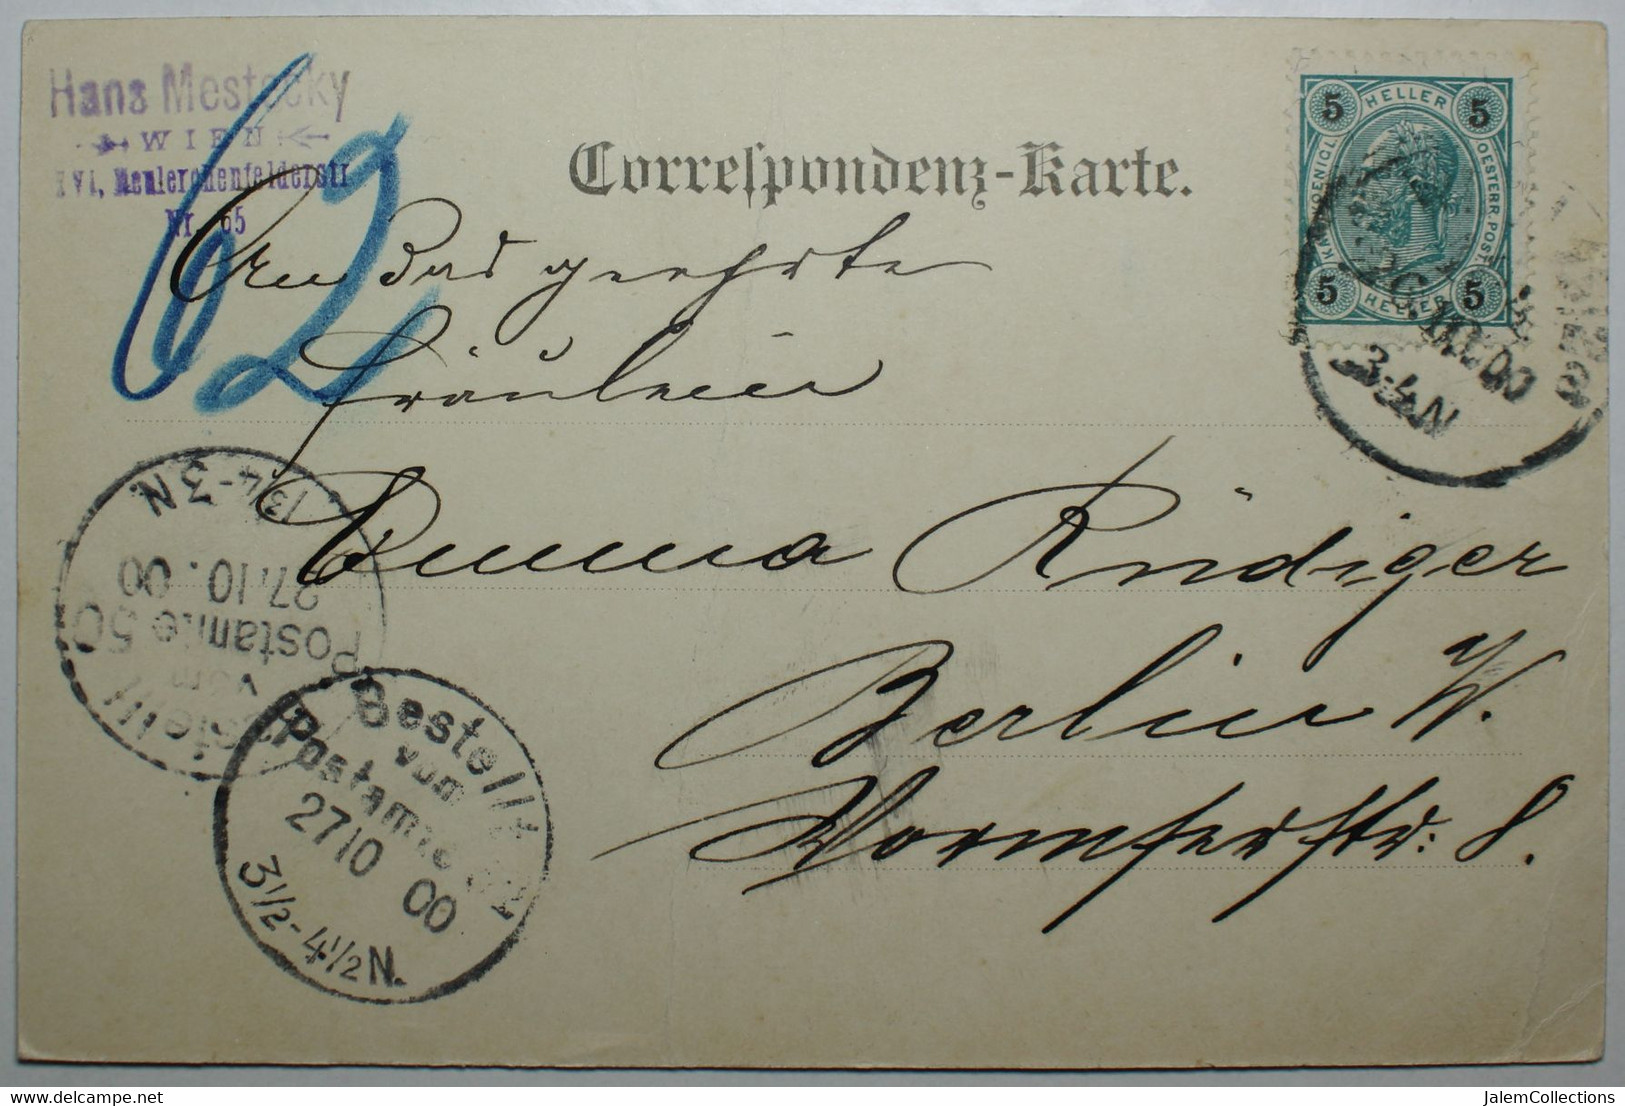 Hans Mestecky
WIEN
XVI, Neulerchenfelderstr
Nr. 65
62
Correſpondenz-Karte.
5 HELLER 5
KAIS. KOENIGL. OESTERR. POST
5 HELLER 5
26.10.00
3-4N
An das geehrte
Fräulein
Emma Rüdiger
Berlin W.
Wormserstr: 8.
Bestellt
vom
Postamte 50
27.10.00
1¾-3N.
Bestellt
vom
Postamte
27/10 00
3½-4½N.
JalemCollections